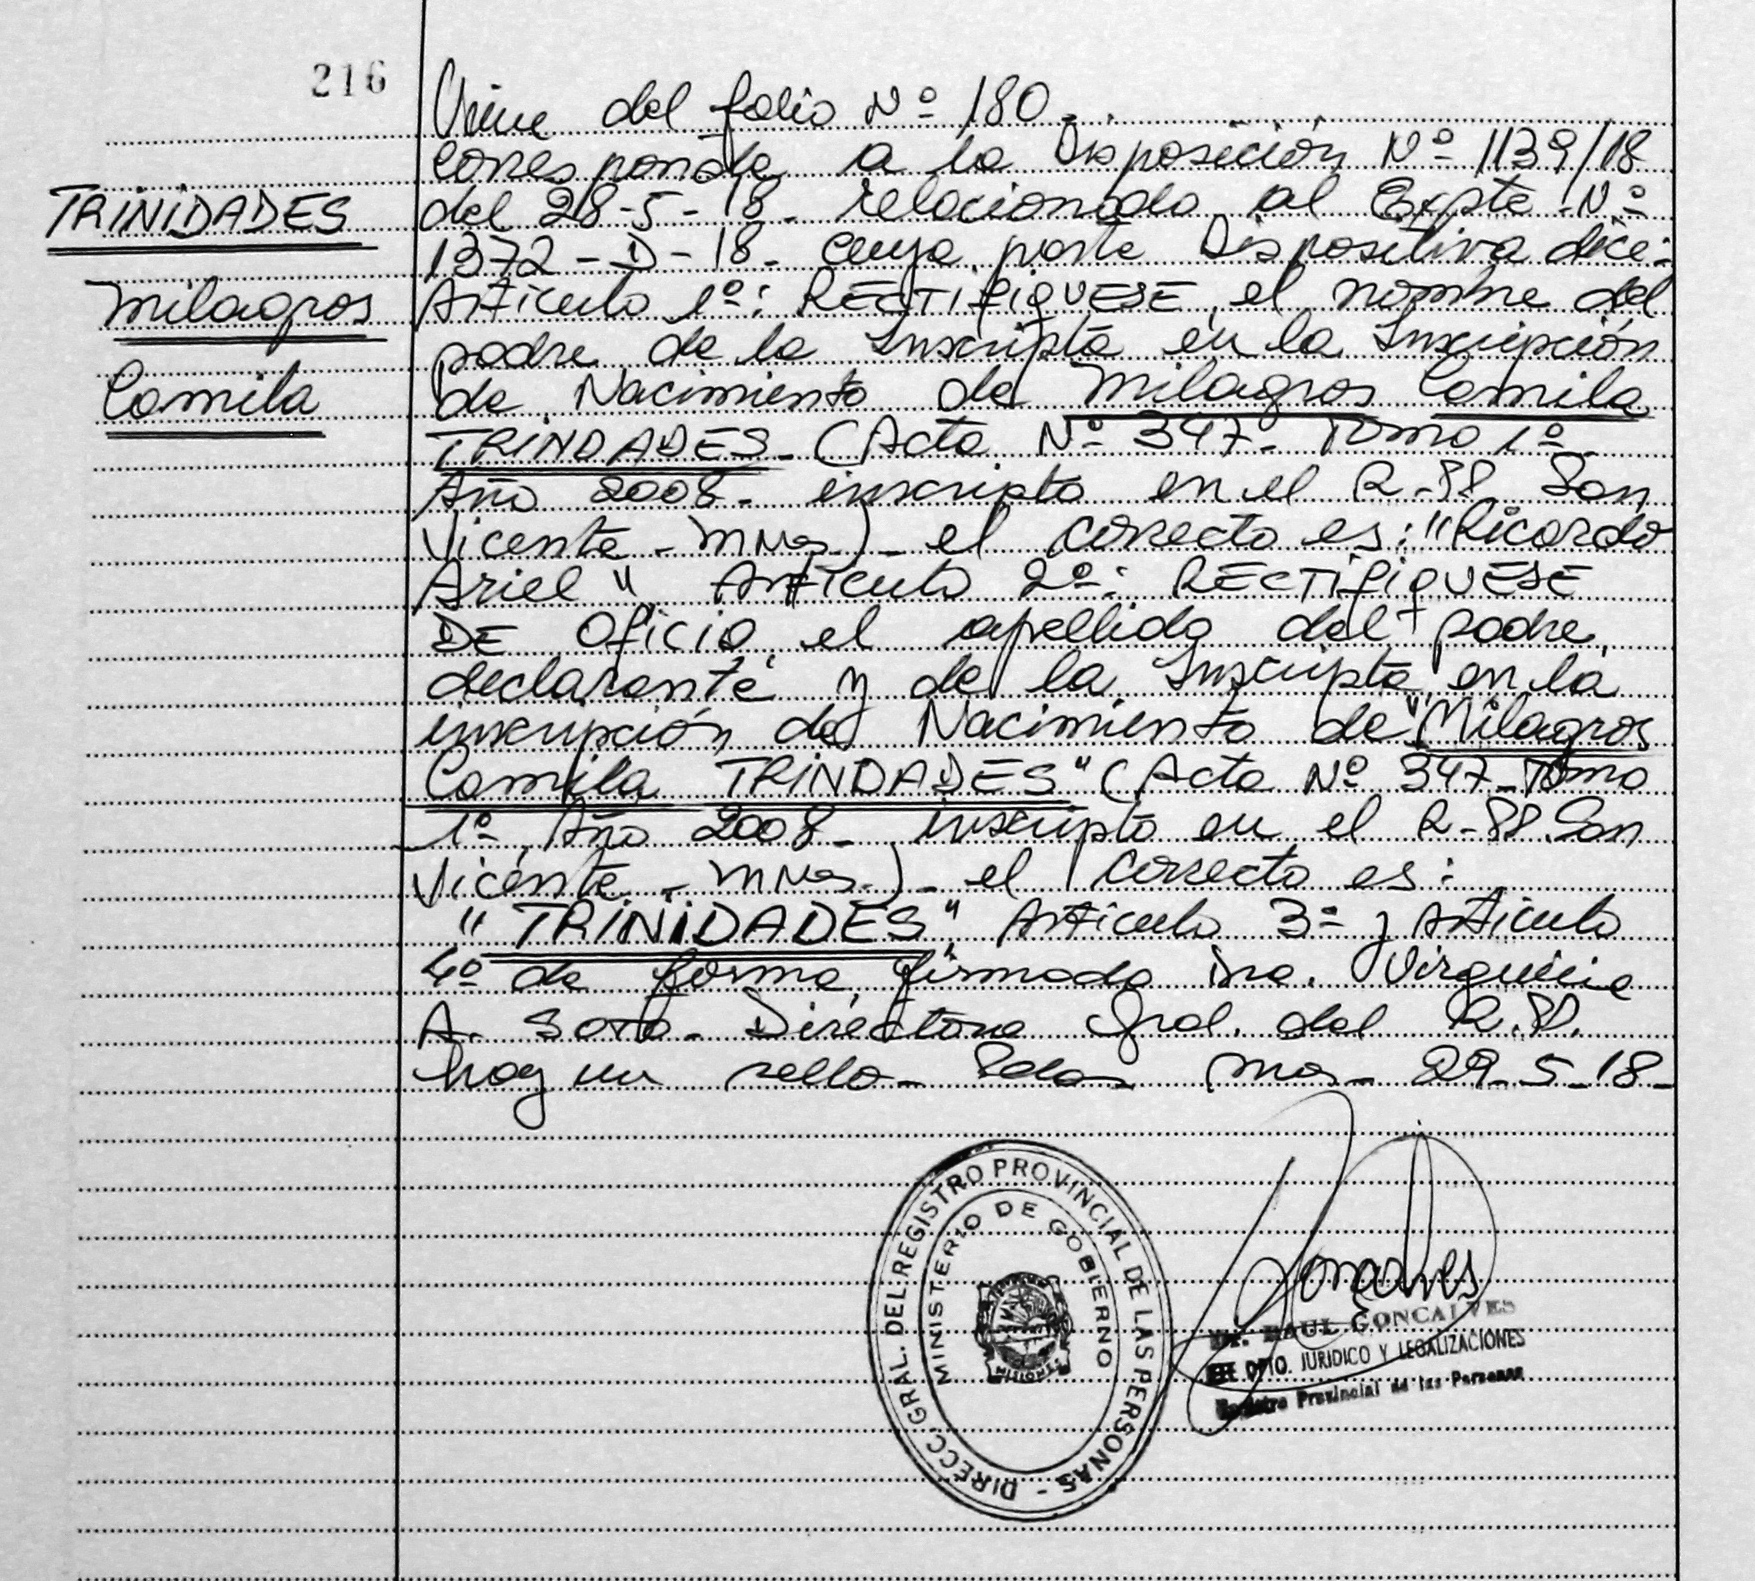 216
TRINIDADES
Milagros
Camila
Viene del folio Nº 180 - .
corresponde a la Disposición Nº 1139/18
del 28-5-18 - relacionado al Expte Nº
1372 - D - 18 - cuya parte Dispositiva dice:
Artículo 1º: RECTIFIQUESE el nombre del
padre de la Inscripta en la Inscripción
de Nacimiento de Milagros Camila
TRINDADES - (Acta Nº 347 - Tomo 1º -
Año 2008 - inscripta en el R-PP San
Vicente - Mnes.) - el correcto es: "Ricardo
Ariel" Artículo 2º: RECTIFIQUESE
DE Oficio el apellido del padre,
declarante y de la Inscripta en la
inscripción de Nacimiento de "Milagros
Camila TRINDADES" (Acta Nº 347 - Tomo
1º Año 2008 - inscripta en el R-PP. San
Vicente - Mnes.) - el correcto es:
"TRINIDADES" Artículo 3º y Artículo
4º de forma, firmado Dra.
A. Soto - Directora Gral. del R.P.P.
hay un sello - Pdas Mnes - 29-5-18 -
DIRECC. GRAL. DEL REGISTRO PROVINCIAL DE LAS PERSONAS -
MINISTERIO DE GOBIERNO
MISIONES
Goncalves
RAUL GONCALVES
DPTO. JURIDICO Y LEGALIZACIONES
Registro Provincial de las Personas